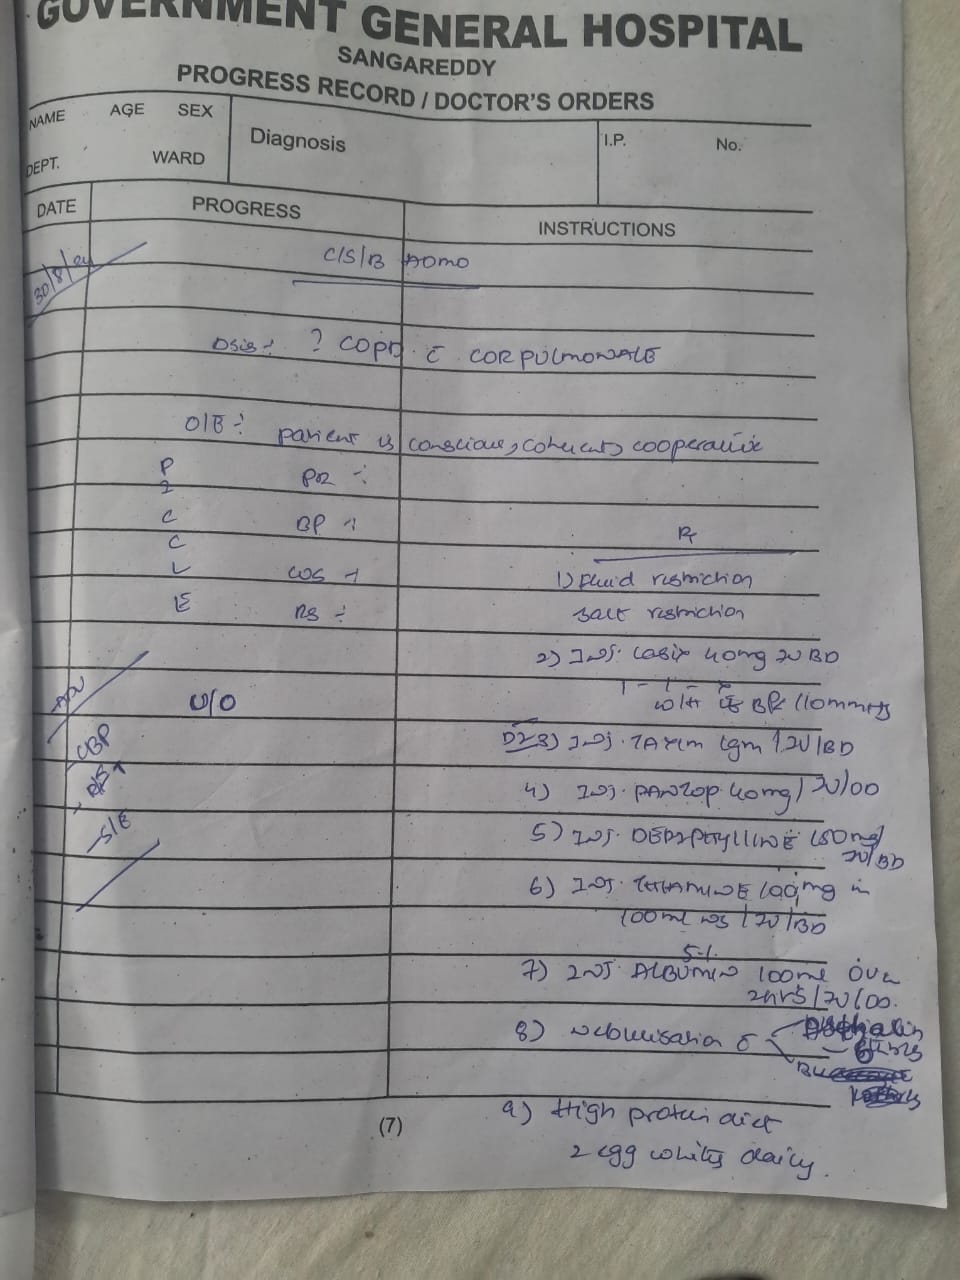 GOVERNMENT GENERAL HOSPITAL
SANGAREDDY
PROGRESS RECORD / DOCTOR'S ORDERS
NAME AGE SEX
DEPT. WARD
Diagnosis
I.P. No.
DATE PROGRESS INSTRUCTIONS
30/8/24
C/S/B ADMO
Dsis :- ? COPD c̄ CORPULMONALE
O/E :- patient is conscious, coherent, cooperative
P PR :-
I
C BP :-
C
L CVS :-
E RS :-
Rx
1) Fluid restriction
salt restriction
2) INJ. Lasix 40mg IV BD
1 - 1 -
w/H if BP< 110mmHg
Adv
U/O
D2 3) INJ. TAXIM 1gm / IV/BD
CBP
4) INJ. PANTOP 40mg / IV/OD
S/E
5) INJ. DERIPHYLLINE 150mg/
IV/BD
6) INJ. THIAMINE 100mg in
100ml NS / IV/BD
5%
7) INJ. ALBUMIN 100ml over
2hrs/IV/OD.
8) Nebulisation c̄
9) High protein diet
2 egg whites daily.
(7)